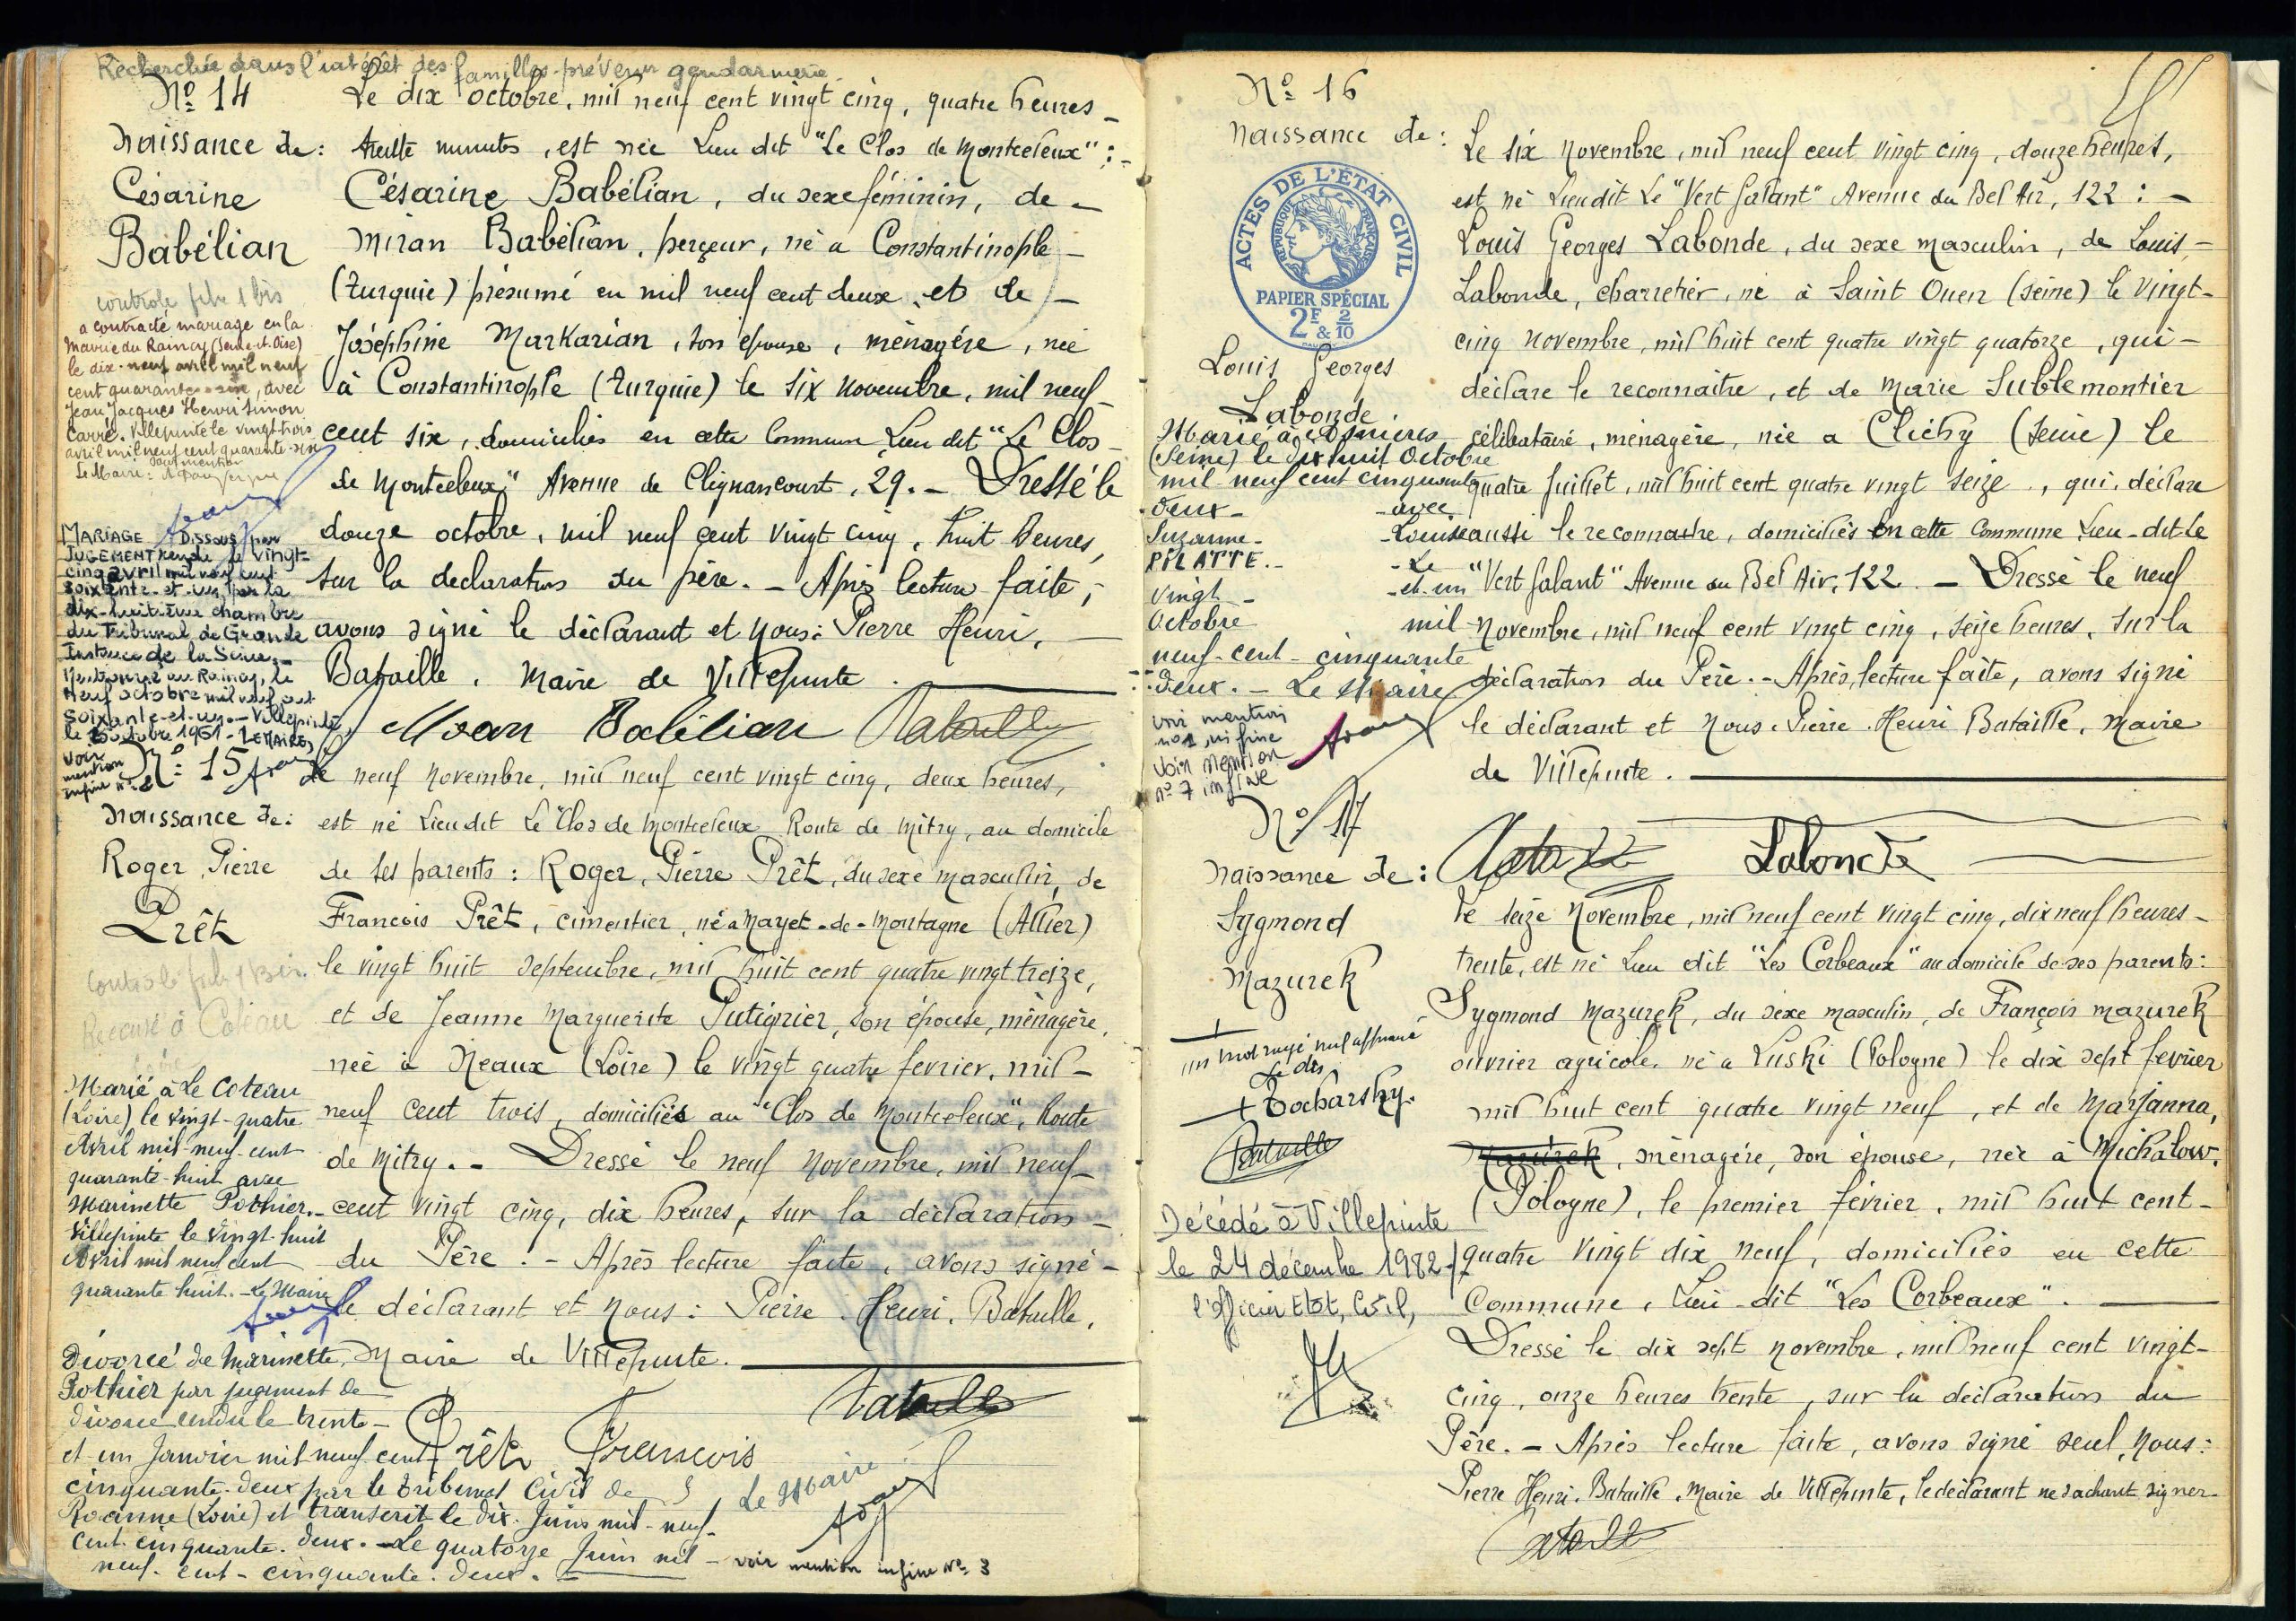 Recherchée dans l'intérêt des familles prévenir gendarmerie
N° 14
Naissance de:
Césarine
Babélian
controle fche 1 bis
a contracté mariage en la
Mairie du Raincy (Seine-et-Oise)
le dix-neuf avril mil neuf
cent quarante-six, avec
Jean Jacques Henri Simon
Carré. Villepinte le vingt trois
avril mil neuf cent quarante-six
Le Maire:
MARIAGE Dissous par
JUGEMENT rendu le vingt-
cinq avril mil neuf cent
soixante-et-un, par la
dix-huitième chambre
du Tribunal de Grande
Instance de la Seine.-
Mentionné au Raincy, le
Neuf octobre mil neuf cent
soixante-et-un.- Villepinte
le octobre 1961 - LE MAIRE,
voir
mention
infine N° 2
Le dix octobre, mil neuf cent vingt cinq, quatre heures _
trente minutes, est née Lieu dit "Le Clos de Montceleux" : -
Césarine Babélian, du sexe féminin, de -
Miran Babélian, perçeur, né à Constantinople -
(Turquie) présumé en mil neuf cent deux et de -
Joséphine Markarian, son épouse, ménagère, née
à Constantinople (Turquie) le six novembre, mil neuf -
cent six, domiciliés en cette Commune Lieu dit "Le Clos -
de Montceleux" Avenue de Clignancourt, 29. - Dressé le
douze octobre, mil neuf cent vingt cinq, huit heures,
sur la déclaration du père. - Après lecture faite, -
avons signé le déclarant et Nous: Pierre Henri, -
Bataille, Maire de Villepinte.
Babélian Bataille
N° 15
Naissance de:
Roger, Pierre
Prêt
Controle fche 1 Bis.
Recensé à Coteau
Marié à Le Coteau
(Loire), le vingt-quatre
Avril mil-neuf-cent
quarante-huit avec
Marinette Pothier.-
Villepinte le vingt-huit
Avril mil neuf cent
quarante huit. - Le Maire
Divorcé de Marinette
Pothier par jugement de
divorce rendu le trente -
et un Janvier mil neuf cent
cinquante-deux par le tribunal Civil de
Roanne (Loire) et transcrit le dix Juin mil-neuf-
cent-cinquante-deux. - Le quatorze Juin mil -
neuf-cent-cinquante-deux. -
Le neuf Novembre, mil neuf cent vingt cinq, deux heures,
est né Lieu dit Le "Clos de Montceleux Route de Mitry, au domicile
de ses parents: Roger, Pierre Prêt, du sexe masculin, de
François Prêt, cimentier, né a Mayet-de-Montagne (Allier)
le vingt huit septembre, mil huit cent quatre vingt treize,
et de Jeanne Marguerite Putignier, son épouse, ménagère,
née à Neaux (Loire) le vingt quatre fevrier, mil -
neuf cent trois, domiciliés au "Clos de Montceleux", Route
de Mitry. - Dressé le neuf Novembre, mil neuf -
cent vingt cinq, dix heures, sur la déclaration -
du Père. - Après lecture faite, avons signé -
le déclarant et Nous: Pierre Henri, Bataille,
Maire de Villepinte.
Prêt François Bataille
Le Maire
voir mention infine N° 3
N° 16
Naissance de:
ACTES DE L'ÉTAT CIVIL
REPUBLIQUE FRANÇAISE
PAPIER SPÉCIAL
2F & 2/10
Louis Georges
Labonde
Marié à Asnières
(Seine) le dix huit Octobre
mil neuf cent cinquante
deux - avec
Suzanne - Louise
PILATTE. - Le
vingt - et un
Octobre mil
neuf-cent-cinquante
deux. - Le Maire
voir mention
n° 1, in fine
Voir mention
n° 7 in fine
Le six Novembre, mil neuf cent vingt cinq, douze heures,
est né Lieu dit Le "Vert Galant" Avenue du Bel Air, 122 : -
Louis Georges Labonde, du sexe masculin, de Louis -
Labonde, charretier, né à Saint Ouen (Seine) le vingt-
cinq novembre, mil huit cent quatre vingt quatorze, qui -
déclare le reconnaître, et de Marie Sublemontier
célibataire, ménagère, née a Clichy (Seine) le
quatre Juillet, mil huit cent quatre vingt seize, qui déclare
aussi le reconnaître, domiciliés en cette Commune Lieu-dit-Le
"Vert Galant" Avenue du Bel Air, 122 - Dressé le neuf
Novembre, mil neuf cent vingt cinq, seize heures, sur la
déclaration du Père. - Après, lecture faite, avons signé
le déclarant et Nous. Pierre Henri Bataille, Maire
de Villepinte.
Bataille Labonde
N° 17
Naissance de:
Sygmond
Mazurek
un mot rayé nul approuvé
Tocharsky.
Bataille
Décédé à Villepinte
le 24 décembre 1982
l'Officier Etat, Civil,
Le seize Novembre, mil neuf cent vingt cinq, dix neuf heures -
trente, est né Lieu dit "Les Corbeaux" au domicile de ses parents:
Sygmond Mazurek, du sexe masculin, de François Mazurek
ouvrier agricole, né a Luski (Pologne) le dix sept fevrier
mil huit cent quatre vingt neuf, et de Marjanna,
Mazurek, ménagère, son épouse, née à Michalow.
(Pologne), le premier février, mil huit cent -
quatre vingt dix neuf, domiciliés en cette
Commune, Lieu-dit "Les Corbeaux".
Dressé le dix sept novembre, mil neuf cent vingt -
cinq, onze heures trente, sur la déclaration du
Père. - Après lecture faite, avons signé seul, Nous:
Pierre Henri, Bataille, Maire de Villepinte, le déclarant ne sachant signer -
Bataille